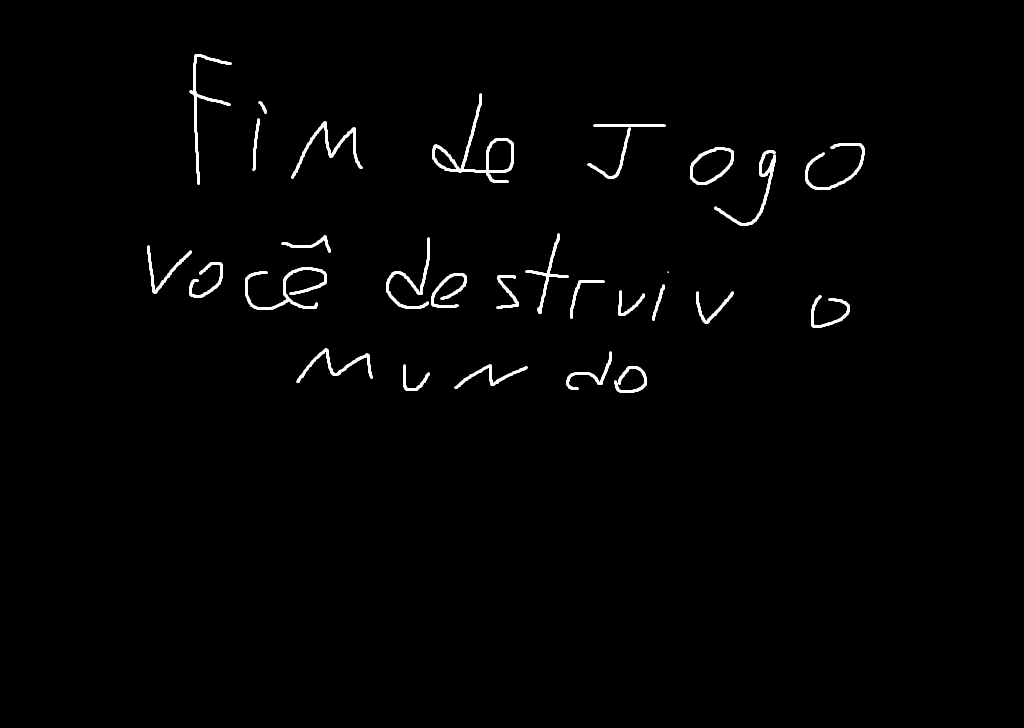 Fim de Jogo
você destruiu o
mundo